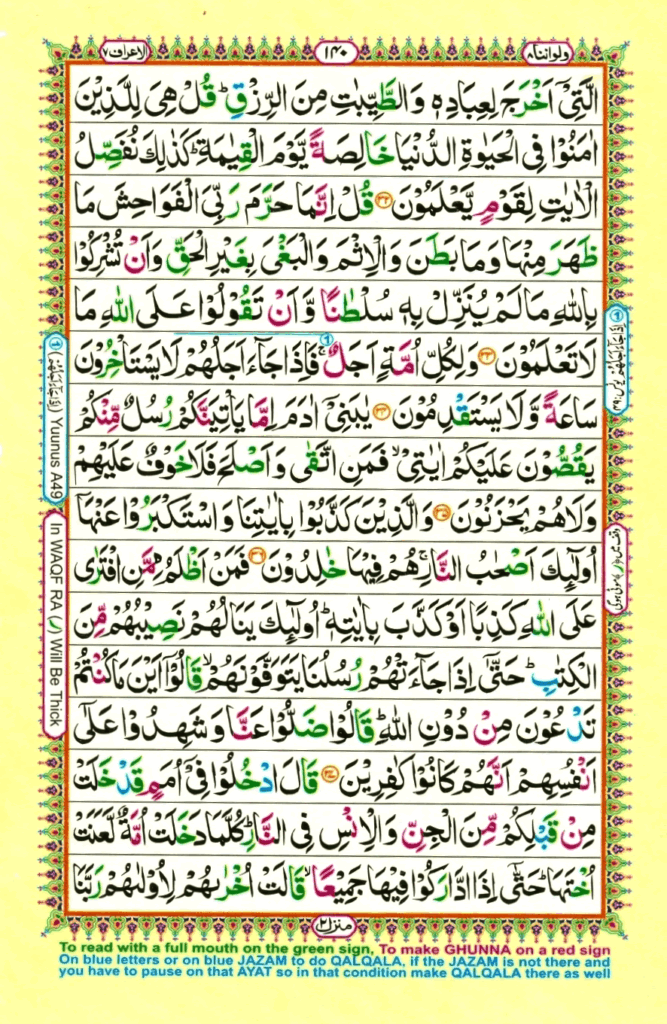 ولواننا ٨
١٤٠
الاعراف ٧
الَّتِىْٓ اَخْرَجَ لِعِبَادِهٖ وَالطَّيِّبٰتِ مِنَ الرِّزْقِ ؕ قُلْ هِىَ لِلَّذِيْنَ
اٰمَنُوْا فِى الْحَيٰوةِ الدُّنْيَا خَالِصَةً يَّوْمَ الْقِيٰمَةِ ؕ كَذٰلِكَ نُفَصِّلُ
الْاٰيٰتِ لِقَوْمٍ يَّعْلَمُوْنَ ۝٣٢ قُلْ اِنَّمَا حَرَّمَ رَبِّىَ الْفَوَاحِشَ مَا
ظَهَرَ مِنْهَا وَمَا بَطَنَ وَالْاِثْمَ وَالْبَغْىَ بِغَيْرِ الْحَقِّ وَاَنْ تُشْرِكُوْا
بِاللّٰهِ مَا لَمْ يُنَزِّلْ بِهٖ سُلْطٰنًا وَّاَنْ تَقُوْلُوْا عَلَى اللّٰهِ مَا
لَا تَعْلَمُوْنَ ۝٣٣ وَلِكُلِّ اُمَّةٍ اَجَلٌ ۚ فَاِذَا جَآءَ اَجَلُهُمْ لَا يَسْتَاْخِرُوْنَ
سَاعَةً وَّلَا يَسْتَقْدِمُوْنَ ۝٣٤ يٰبَنِىْٓ اٰدَمَ اِمَّا يَاْتِيَنَّكُمْ رُسُلٌ مِّنْكُمْ
يَقُصُّوْنَ عَلَيْكُمْ اٰيٰتِىْ ۙ فَمَنِ اتَّقٰى وَاَصْلَحَ فَلَا خَوْفٌ عَلَيْهِمْ
وَلَا هُمْ يَحْزَنُوْنَ ۝٣٥ وَالَّذِيْنَ كَذَّبُوْا بِاٰيٰتِنَا وَاسْتَكْبَرُوْا عَنْهَآ
اُولٰٓئِكَ اَصْحٰبُ النَّارِ ۚ هُمْ فِيْهَا خٰلِدُوْنَ ۝٣٦ فَمَنْ اَظْلَمُ مِمَّنِ افْتَرٰى
عَلَى اللّٰهِ كَذِبًا اَوْ كَذَّبَ بِاٰيٰتِهٖ ؕ اُولٰٓئِكَ يَنَالُهُمْ نَصِيْبُهُمْ مِّنَ
الْكِتٰبِ ؕ حَتّٰٓى اِذَا جَآءَتْهُمْ رُسُلُنَا يَتَوَفَّوْنَهُمْ ۙ قَالُوْٓا اَيْنَ مَا كُنْتُمْ
تَدْعُوْنَ مِنْ دُوْنِ اللّٰهِ ؕ قَالُوْا ضَلُّوْا عَنَّا وَشَهِدُوْا عَلٰٓى
اَنْفُسِهِمْ اَنَّهُمْ كَانُوْا كٰفِرِيْنَ ۝٣٧ قَالَ ادْخُلُوْا فِىْٓ اُمَمٍ قَدْ خَلَتْ
مِنْ قَبْلِكُمْ مِّنَ الْجِنِّ وَالْاِنْسِ فِى النَّارِ ؕ كُلَّمَا دَخَلَتْ اُمَّةٌ لَّعَنَتْ
اُخْتَهَا ؕ حَتّٰٓى اِذَا ادَّارَكُوْا فِيْهَا جَمِيْعًا ۙ قَالَتْ اُخْرٰىهُمْ لِاُوْلٰىهُمْ رَبَّنَا
Yuunus A49
In WAQF RA (ر) Will Be Thick
منزل ٢
To read with a full mouth on the green sign, To make GHUNNA on a red sign
On blue letters or on blue JAZAM to do QALQALA, if the JAZAM is not there and
you have to pause on that AYAT so in that condition make QALQALA there as well